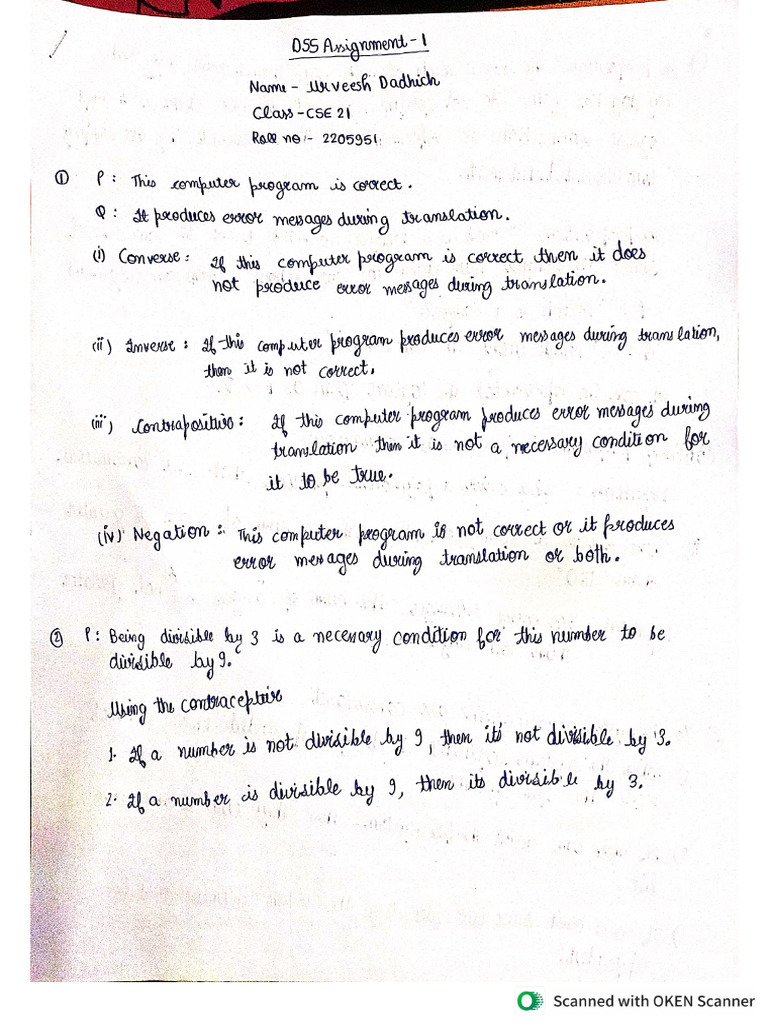 DSS Assignment-1
Name - Urveesh Dadhich
Class - CSE 21
Roll no :- 2205951
① P : This computer program is correct.
Q : It produces error messages during translation.
(i) Converse : If this computer program is correct then it does
not produce error messages during translation.
(ii) Inverse : If this computer program produces error messages during translation,
then it is not correct.
(iii) Contrapositive : If this computer program produces error messages during
translation then it is not a necessary condition for
it to be true.
(iv) Negation :- This computer program is not correct or it produces
error messages during translation or both.
② P : Being divisible by 3 is a necessary condition for this number to be
divisible by 9.
Using the contraceptair
1. If a number is not divisible by 9, then it's not divisible by 3.
2. If a number is divisible by 9, then its divisible by 3.
Scanned with OKEN Scanner